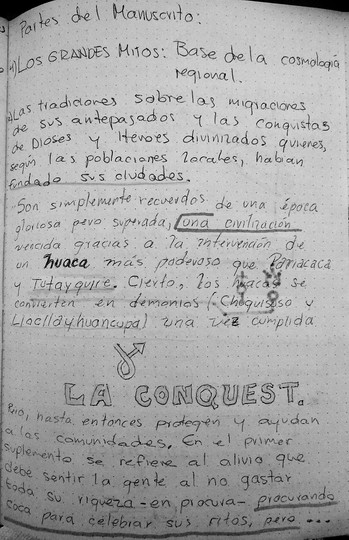 Partes del Manuscrito:
LOS GRANDES MITOS: Base de la cosmología
regional.
Las tradiciones sobre las migraciones
de sus antepasados y las conquistas
de Dioses y Heroes divinizados quienes,
según las poblaciones locales, habían
fundado sus ciudades.
Son simplemente recuerdos de una época
gloriosa pero superada, una civilización
vencida gracias a la intervención de
un huaca más poderoso que Pariacaca
y Tutayquire. Cierto, los huacas se
convierten en demonios (Choquisuso y
Llocllayhuancupa) una vez cumplida
LA CONQUEST.
Pero, hasta entonces protegen y ayudan
a las comunidades. En el primer
suplemento se refiere al alivio que
debe sentir la gente al no gastar
toda su riqueza - en procura - procurando
coca para celebrar sus ritos, pero ...